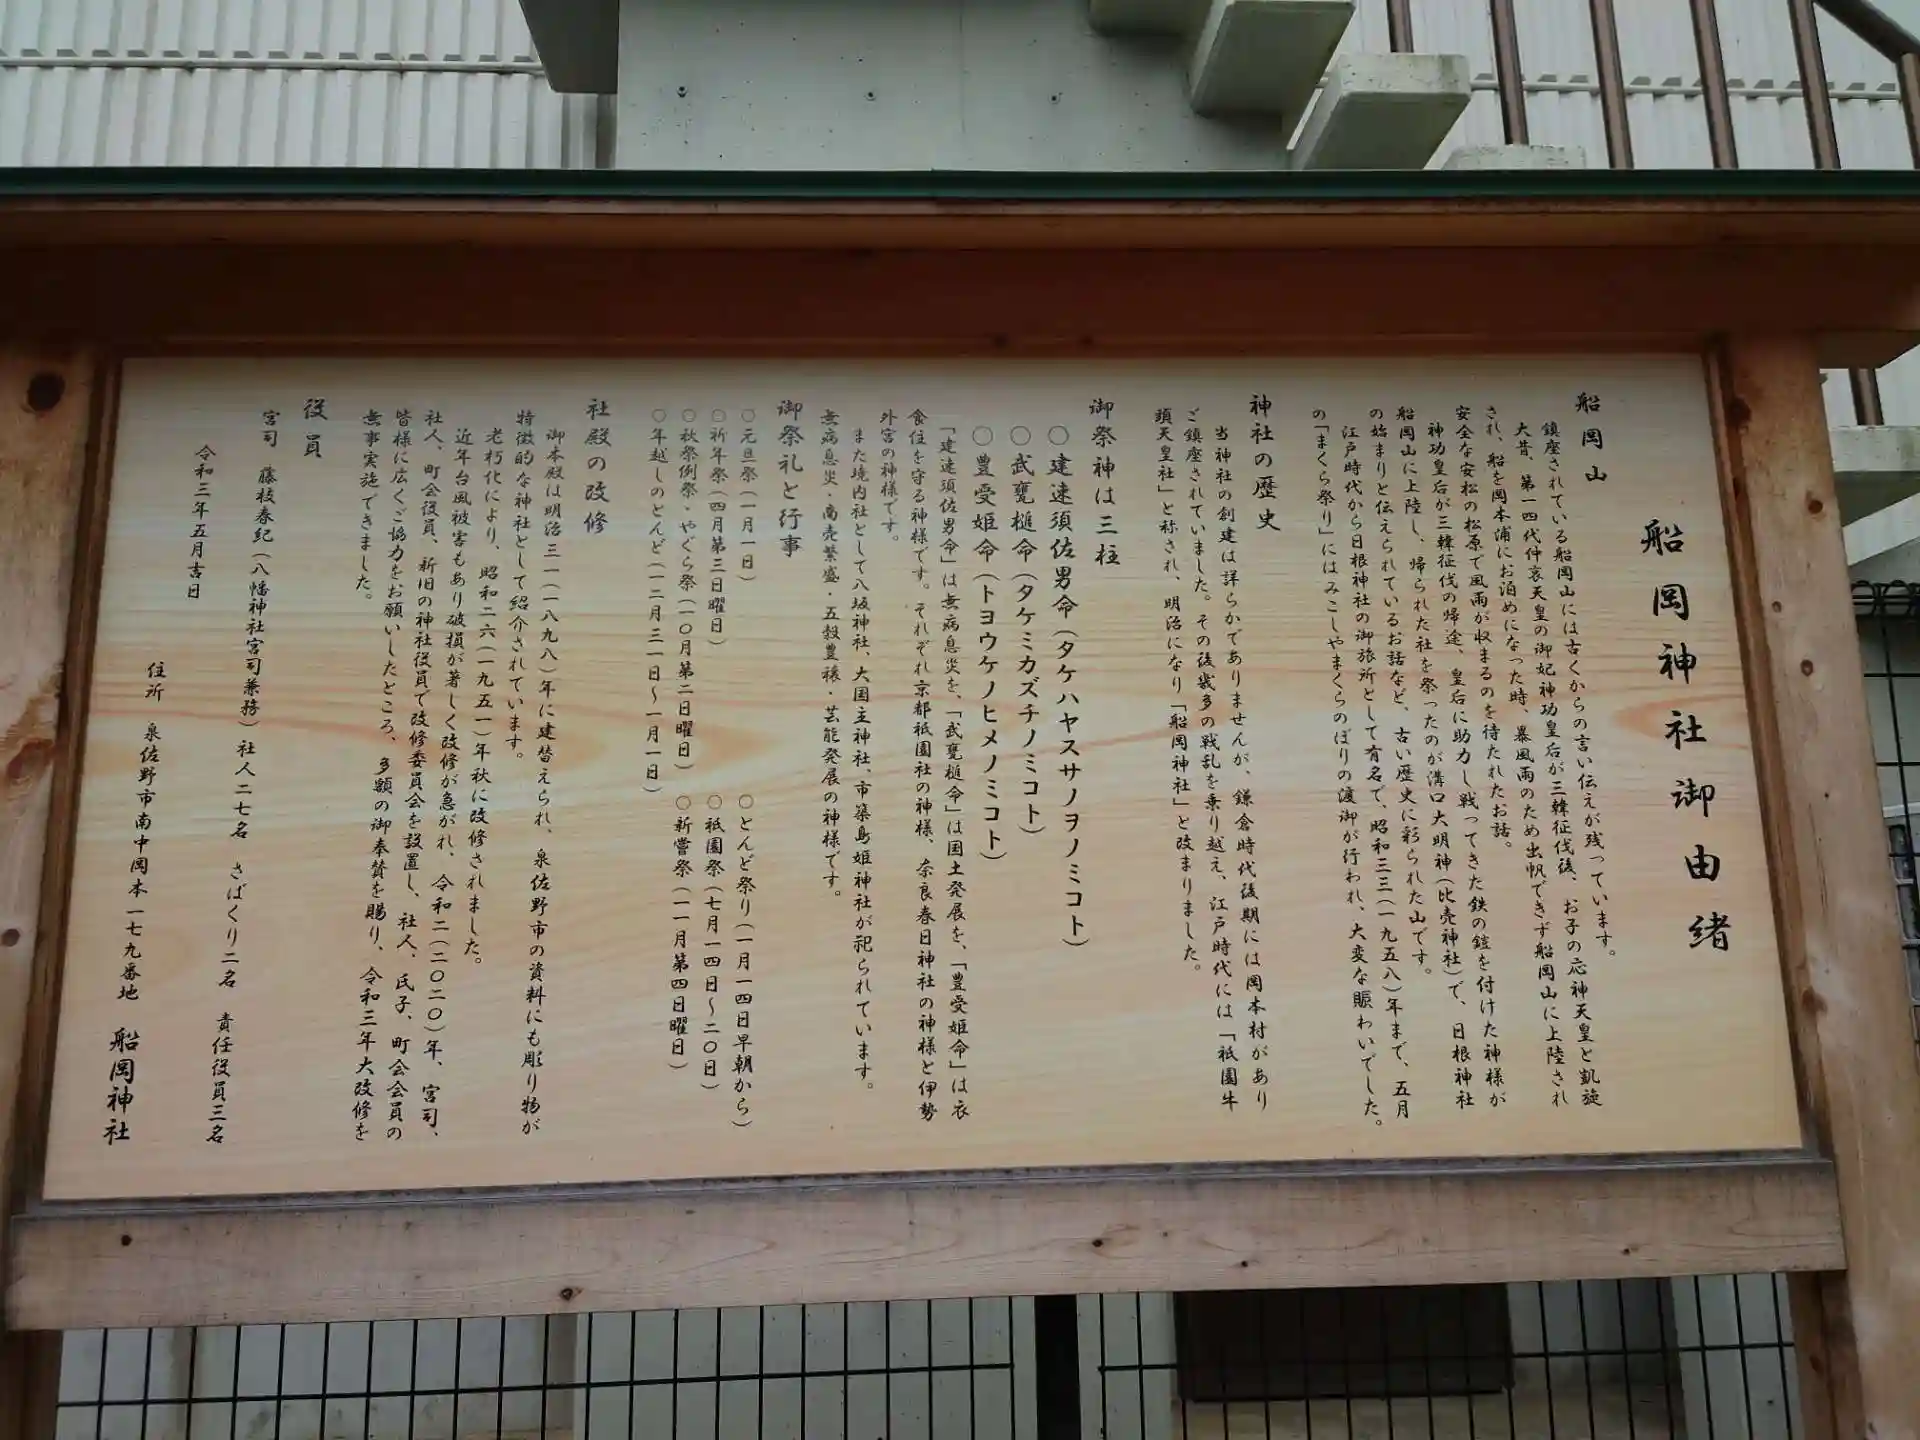 船岡神社御由緒
船岡山
鎮座されている船岡山には古くからの言い伝えが残っています。
大昔、第一四代仲哀天皇の御妃神功皇后が三韓征伐後、お子の応神天皇と凱旋
され、船を岡本浦にお泊めになった時、暴風雨のため出帆できず船岡山に上陸され
安全な安松の松原で風雨が収まるのを待たれたお話。
神功皇后が三韓征伐の帰途、皇后に助力し戦ってきた鉄の鎧を付けた神様が
船岡山に上陸し、帰られた社を祭ったのが溝口大明神(比売神社)で、日根神社
の始まりと伝えられているお話など、古い歴史に彩られた山です。
江戸時代から日根神社の御旅所として有名で、昭和三三(一九五八)年まで、五月
の「まくら祭り」にはみこしやまくらのぼりの渡御が行われ、大変な賑わいでした。
神社の歴史
当神社の創建は詳らかでありませんが、鎌倉時代後期には岡本村があり
ご鎮座されていました。その後幾多の戦乱を乗り越え、江戸時代には「祇園牛
頭天皇社」と称され、明治になり「船岡神社」と改まりました。
御祭神は三柱
○建速須佐男命(タケハヤスサノヲノミコト)
○武甕槌命(タケミカズチノミコト)
○豊受姫命(トヨウケノヒメノミコト)
「建速須佐男命」は無病息災を、「武甕槌命」は国土発展を、「豊受姫命」は衣
食住を守る神様です。それぞれ京都祇園社の神様、奈良春日神社の神様と伊勢
外宮の神様です。
また境内社として八坂神社、大国主神社、市築島姫神社が祀られています。
無病息災・商売繁盛・五穀豊穣・芸能発展の神様です。
御祭礼と行事
○元旦祭(一月一日)
○とんど祭り(一月一四日早朝から)
○祈年祭(四月第三日曜日)
○祇園祭(七月一四日～二〇日)
○秋祭例祭・やぐら祭(一〇月第二日曜日)
○新嘗祭(一一月第四日曜日)
○年越しのとんど(一二月三一日～一月一日)
社殿の改修
御本殿は明治三一(一八九八)年に建替えられ、泉佐野市の資料にも彫り物が
特徴的な神社として紹介されています。
老朽化により、昭和二六(一九五一)年秋に改修されました。
近年台風被害もあり破損が著しく改修が急がれ、令和二(二〇二〇)年、宮司、
社人、町会役員、新旧の神社役員で改修委員会を設置し、社人、氏子、町会会員の
皆様に広くご協力をお願いしたところ、多額の御奉賛を賜り、令和三年大改修を
無事実施できました。
役員
宮司 藤枝春紀(八幡神社宮司兼務) 社人二七名 さばくり二名 責任役員三名
令和三年五月吉日
住所 泉佐野市南中岡本一七九番地 船岡神社